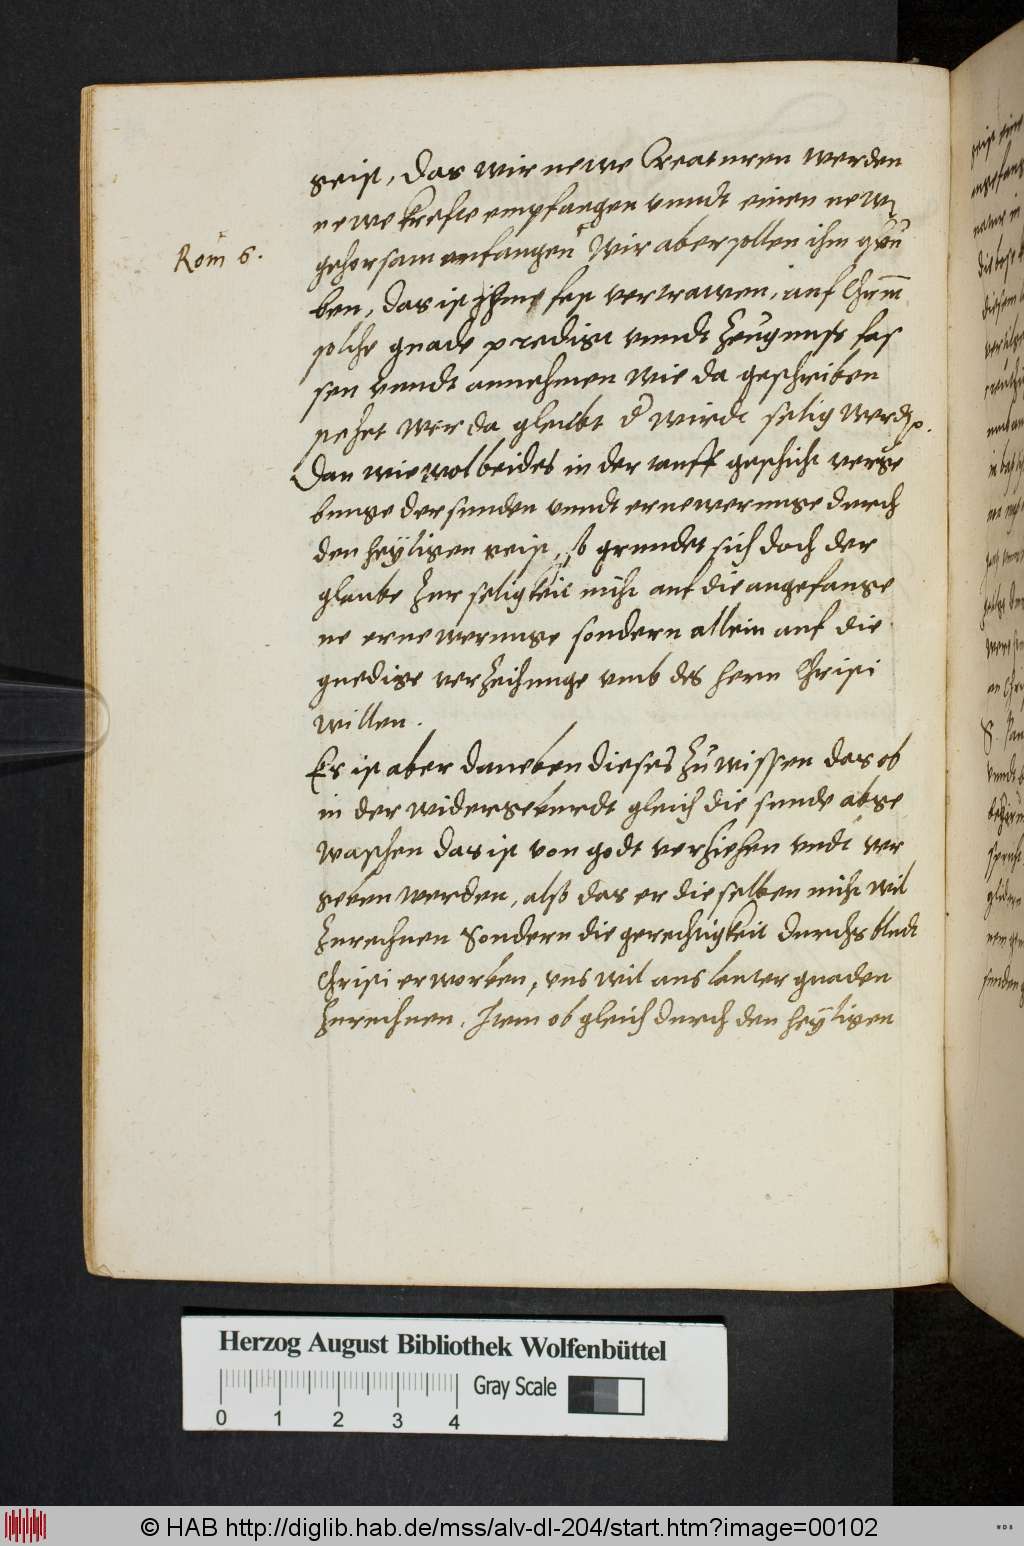 geist, Das wir newe Creaturen werden
newe krefte empfangen vnndt einen newen
gehorsam anfangen Wir aber sollen ihm glau
Röm 6.
ben, das ist ihme fest vertrawen, auf Christum
solche gnade predigt vnndt zeugnuß fas
sen vnndt annehmen wie da geschriben
stehet wer da gleubt der wirdt selig werden.
Dan wiewol beides in der tauff geschicht verge
bunge der sunden vnndt ernewerunge durch
den heÿligen geist, so grundet sich doch der
glaube zur seligkeit nicht auf die angefange
ne ernewerunge sondern allein auf die
gnedige verzeihunge vmb des hern Christi
willen.
Es ist aber daneben dieses zu wissen das ob
in der widergeburdt gleich die sunde abge
waschen das ist von godt verziehen vndt ver
geben werden, also das er dieselben nicht wil
zurechnen Sondern die gerechtigkeit durchs bludt
Christi erworben, vns wil aus lauter gnaden
zurechnen. Item ob gleich durch den heÿligen
Herzog August Bibliothek Wolfenbüttel
Gray Scale
0 1 2 3 4
© HAB http://diglib.hab.de/mss/alv-dl-204/start.htm?image=00102